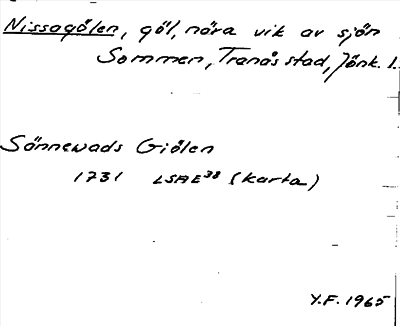 Nissagölen, göl, nära vik av sjön
Sommen, Tranås stad, Jönk. l.
Sännewads Giölen
1731 LSAE³⁸ (karta)
Y.F. 1965